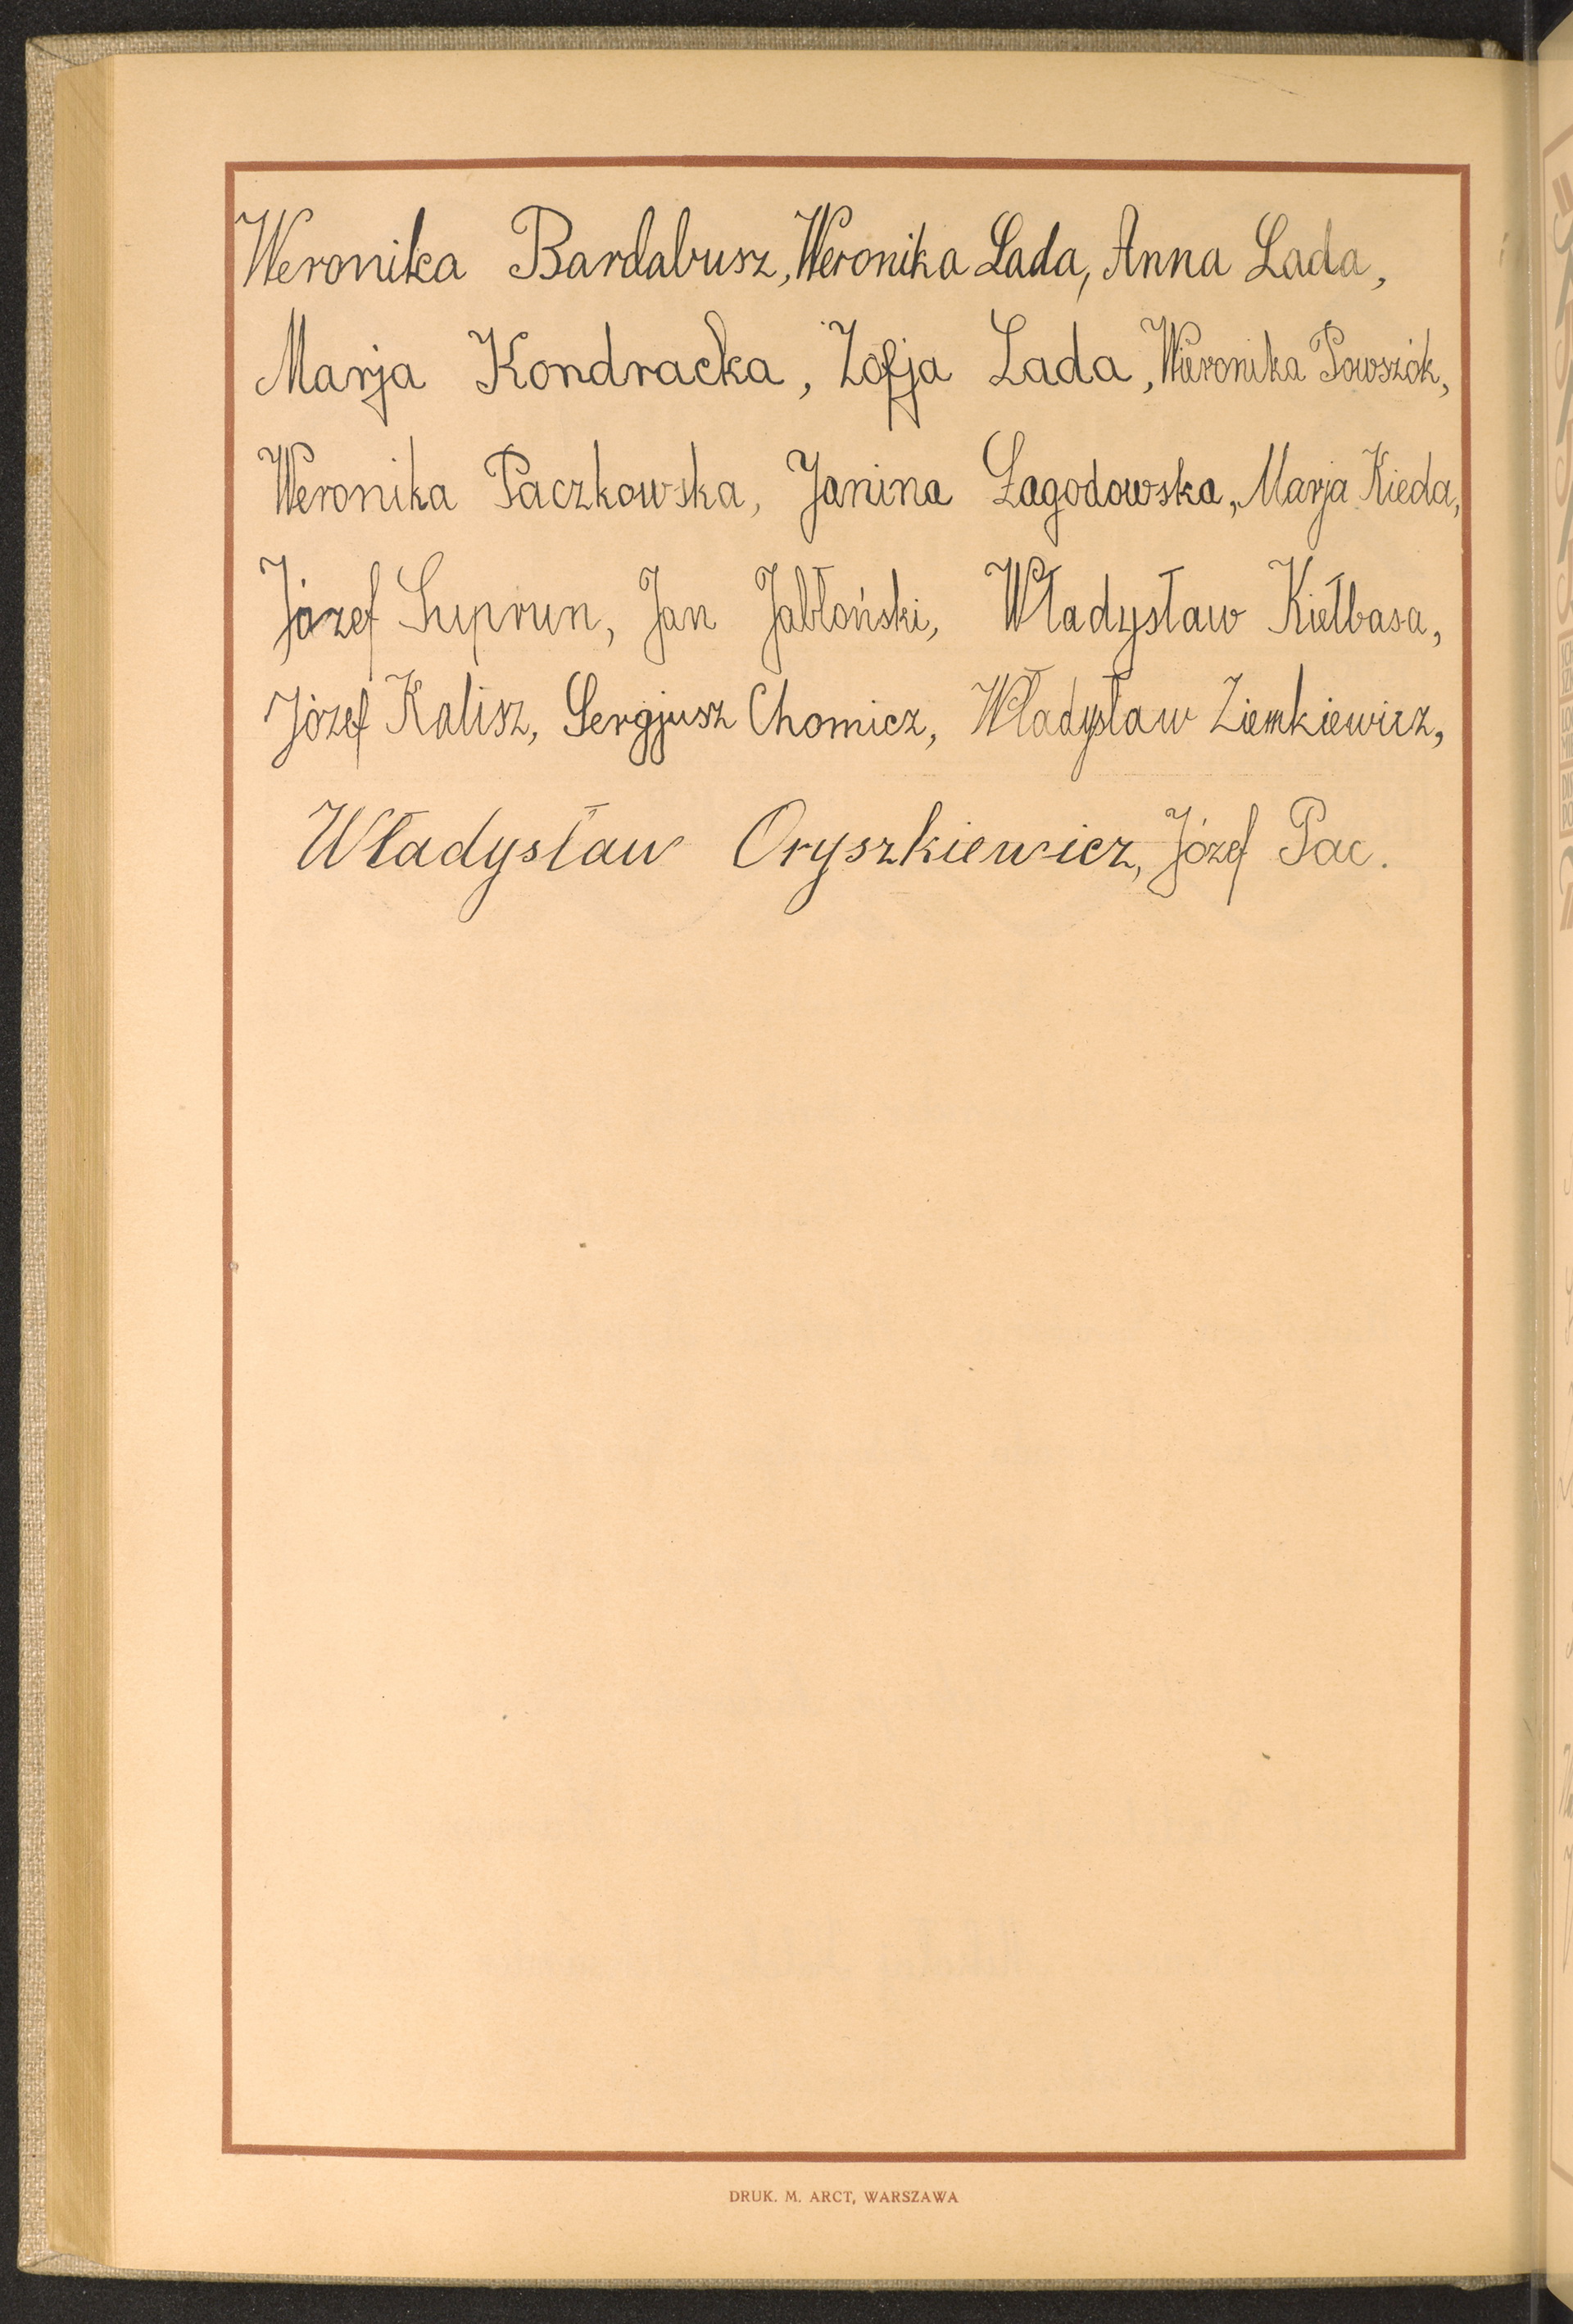 Weronika Bardabusz, Weronika Lada, Anna Lada,
Marja Kondracka, Zofja Lada, Weronika Powszók,
Weronika Paczkowska, Janina Łagodowska, Marja Kieda,
Józef Suprun, Jan Jabłoński, Władysław Kiełbasa,
Józef Kalisz, Sergjusz Chomicz, Władysław Ziemkiewicz,
Władysław Oryszkiewicz, Józef Pac.
DRUK. M. ARCT, WARSZAWA